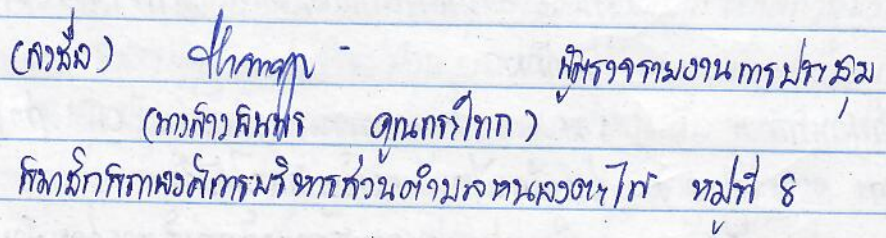 (ลงชื่อ) ผู้ตรวจรายงานการประชุม
(นางสาวพินพร คูณกระโทก)
สมาชิกสภาองค์การบริหารส่วนตำบลหนองตะไก้ หมู่ที่ 8